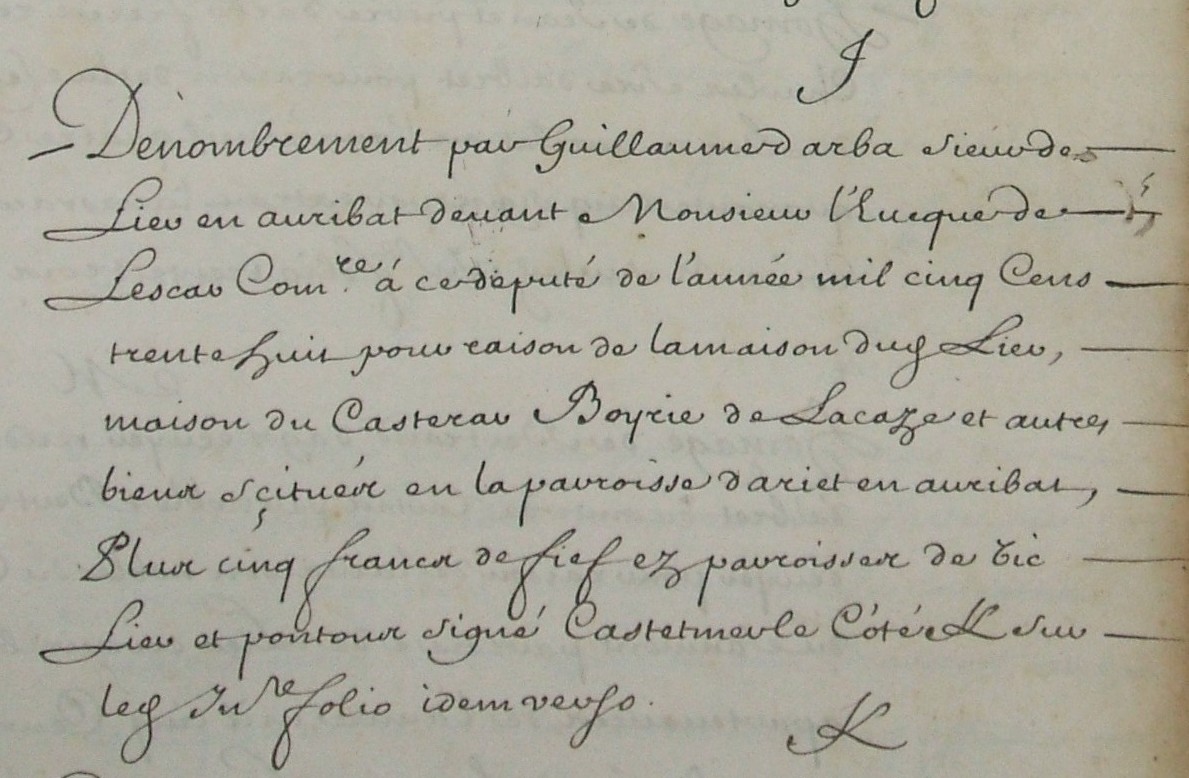 J
Denombrement par Guillaume darba sieur de
Lier en auribat devant Monsieur l'Evequé de
Lescar Com.re á ce députe de l'année mil cinq Cens
trente huit pour raison de la maison dud Lier,
maison du Casterar Boyrie de Lacaze et autres
biens scitués en la parroisse dariet en auribat,
Plus cinq francs de fief ez parroisses de Vic
Lier et pontous signé Castetmerle Côté K sur
led Inre folio idem verso.
K